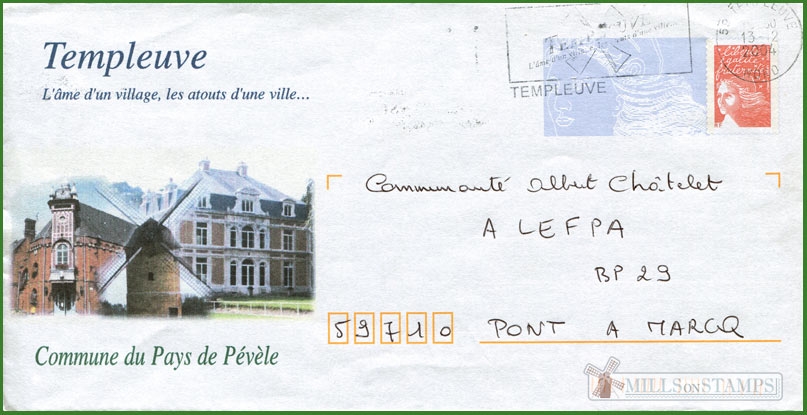 Templeuve
L'âme d'un village, les atouts d'une ville...
TEMPLEUVE
L'âme d'un village,
TEMPLEUVE
TEMPLEUVE
13-2
liberté
égalité
fraternité
RF
Communauté Albert Châtelet
A LEFPA
BP 29
59710 PONT A MARCQ
Commune du Pays de Pévèle
MILLSONSTAMPS